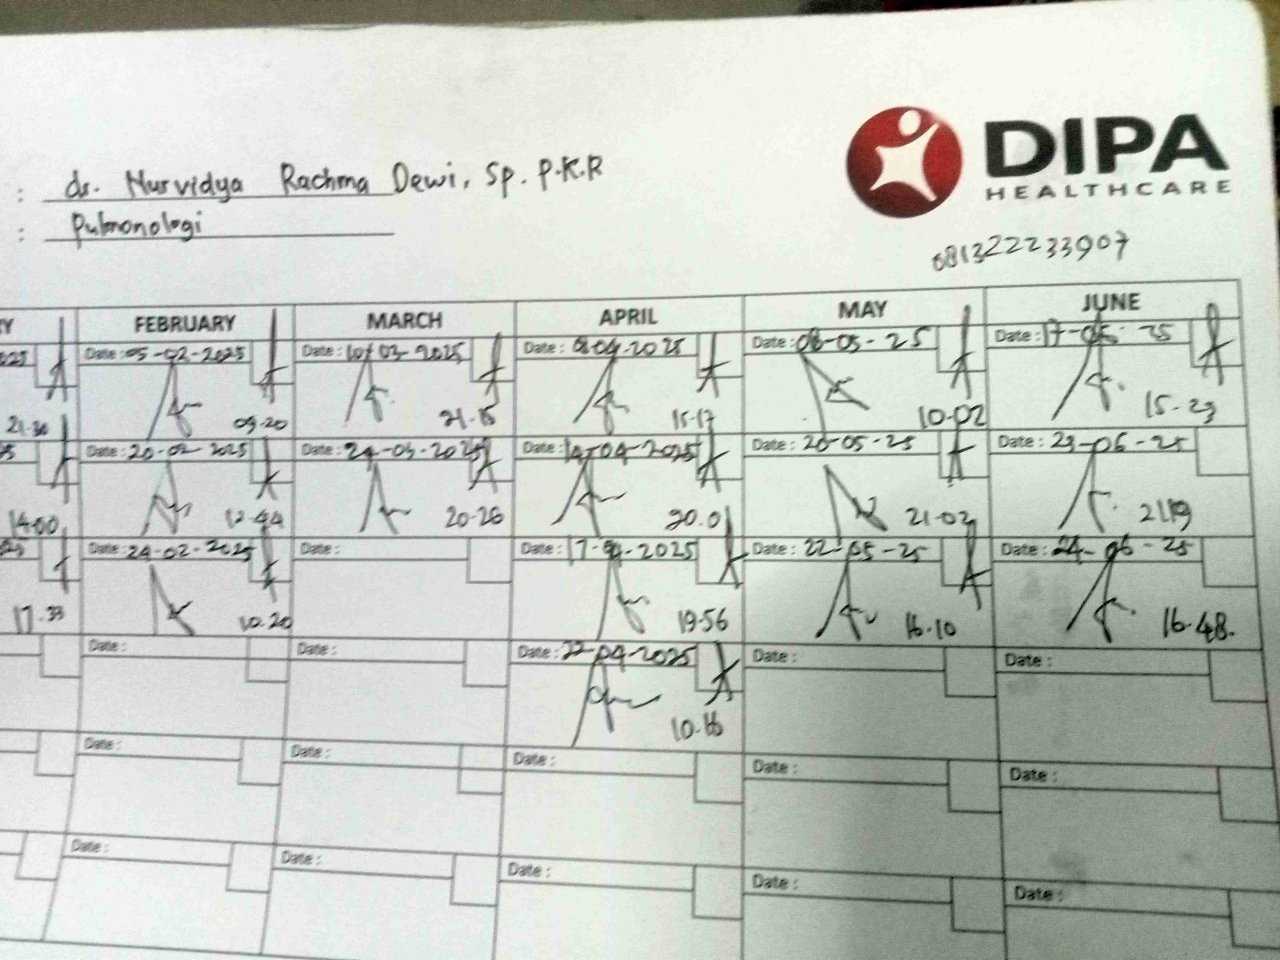 DIPA
HEALTHCARE
: dr. Nurvidya Rachma Dewi, Sp. P.K.R
: Pulmonologi
081322233907
Y FEBRUARY MARCH APRIL MAY JUNE
025 Date : 05-02-2025 Date : 10-03-2025 Date : 8-04-2025 Date : 06-05-25 Date : 17-06-25
21.30 09.20 21.15 15.17 10.02 15.23
25 Date : 20-02-2025 Date : 24-03-2025 Date : 14-04-2025 Date : 20-05-25 Date : 23-06-25
14.00 12.44 20.26 20.01 21.02 2119
Date : 24-02-2025 Date : Date : 17-04-2025 Date : 22-05-25 Date : 24-06-25
17.33 10.20 19.56 16.10 16.48.
Date : Date : Date : 22-04-2025 Date : Date :
10.16
Date : Date : Date : Date : Date :
Date : Date : Date : Date : Date :